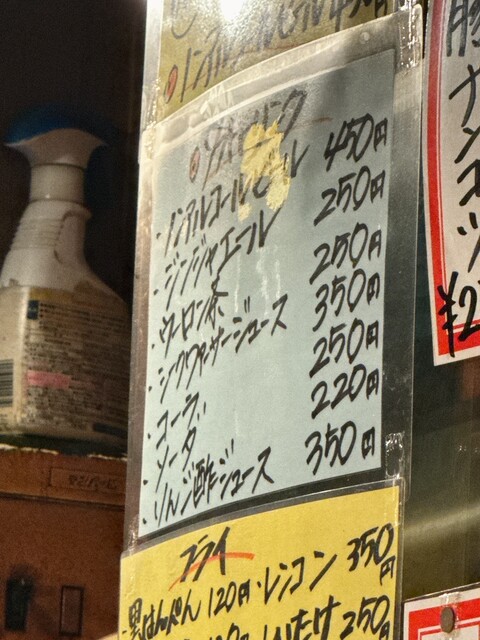 ノンアルコールビール 450円
ソフトドリンク
・ノンアルコールビール 450円
・ジンジャエール 250円
・ウーロン茶 250円
・シークヮーサージュース 350円
・コーラ 250円
・ソーダ 220円
・りんご酢ジュース 350円
フライ
・黒はんぺん 120円・レンコン 350円
しいたけ 250
豚
ナンコツ
¥2